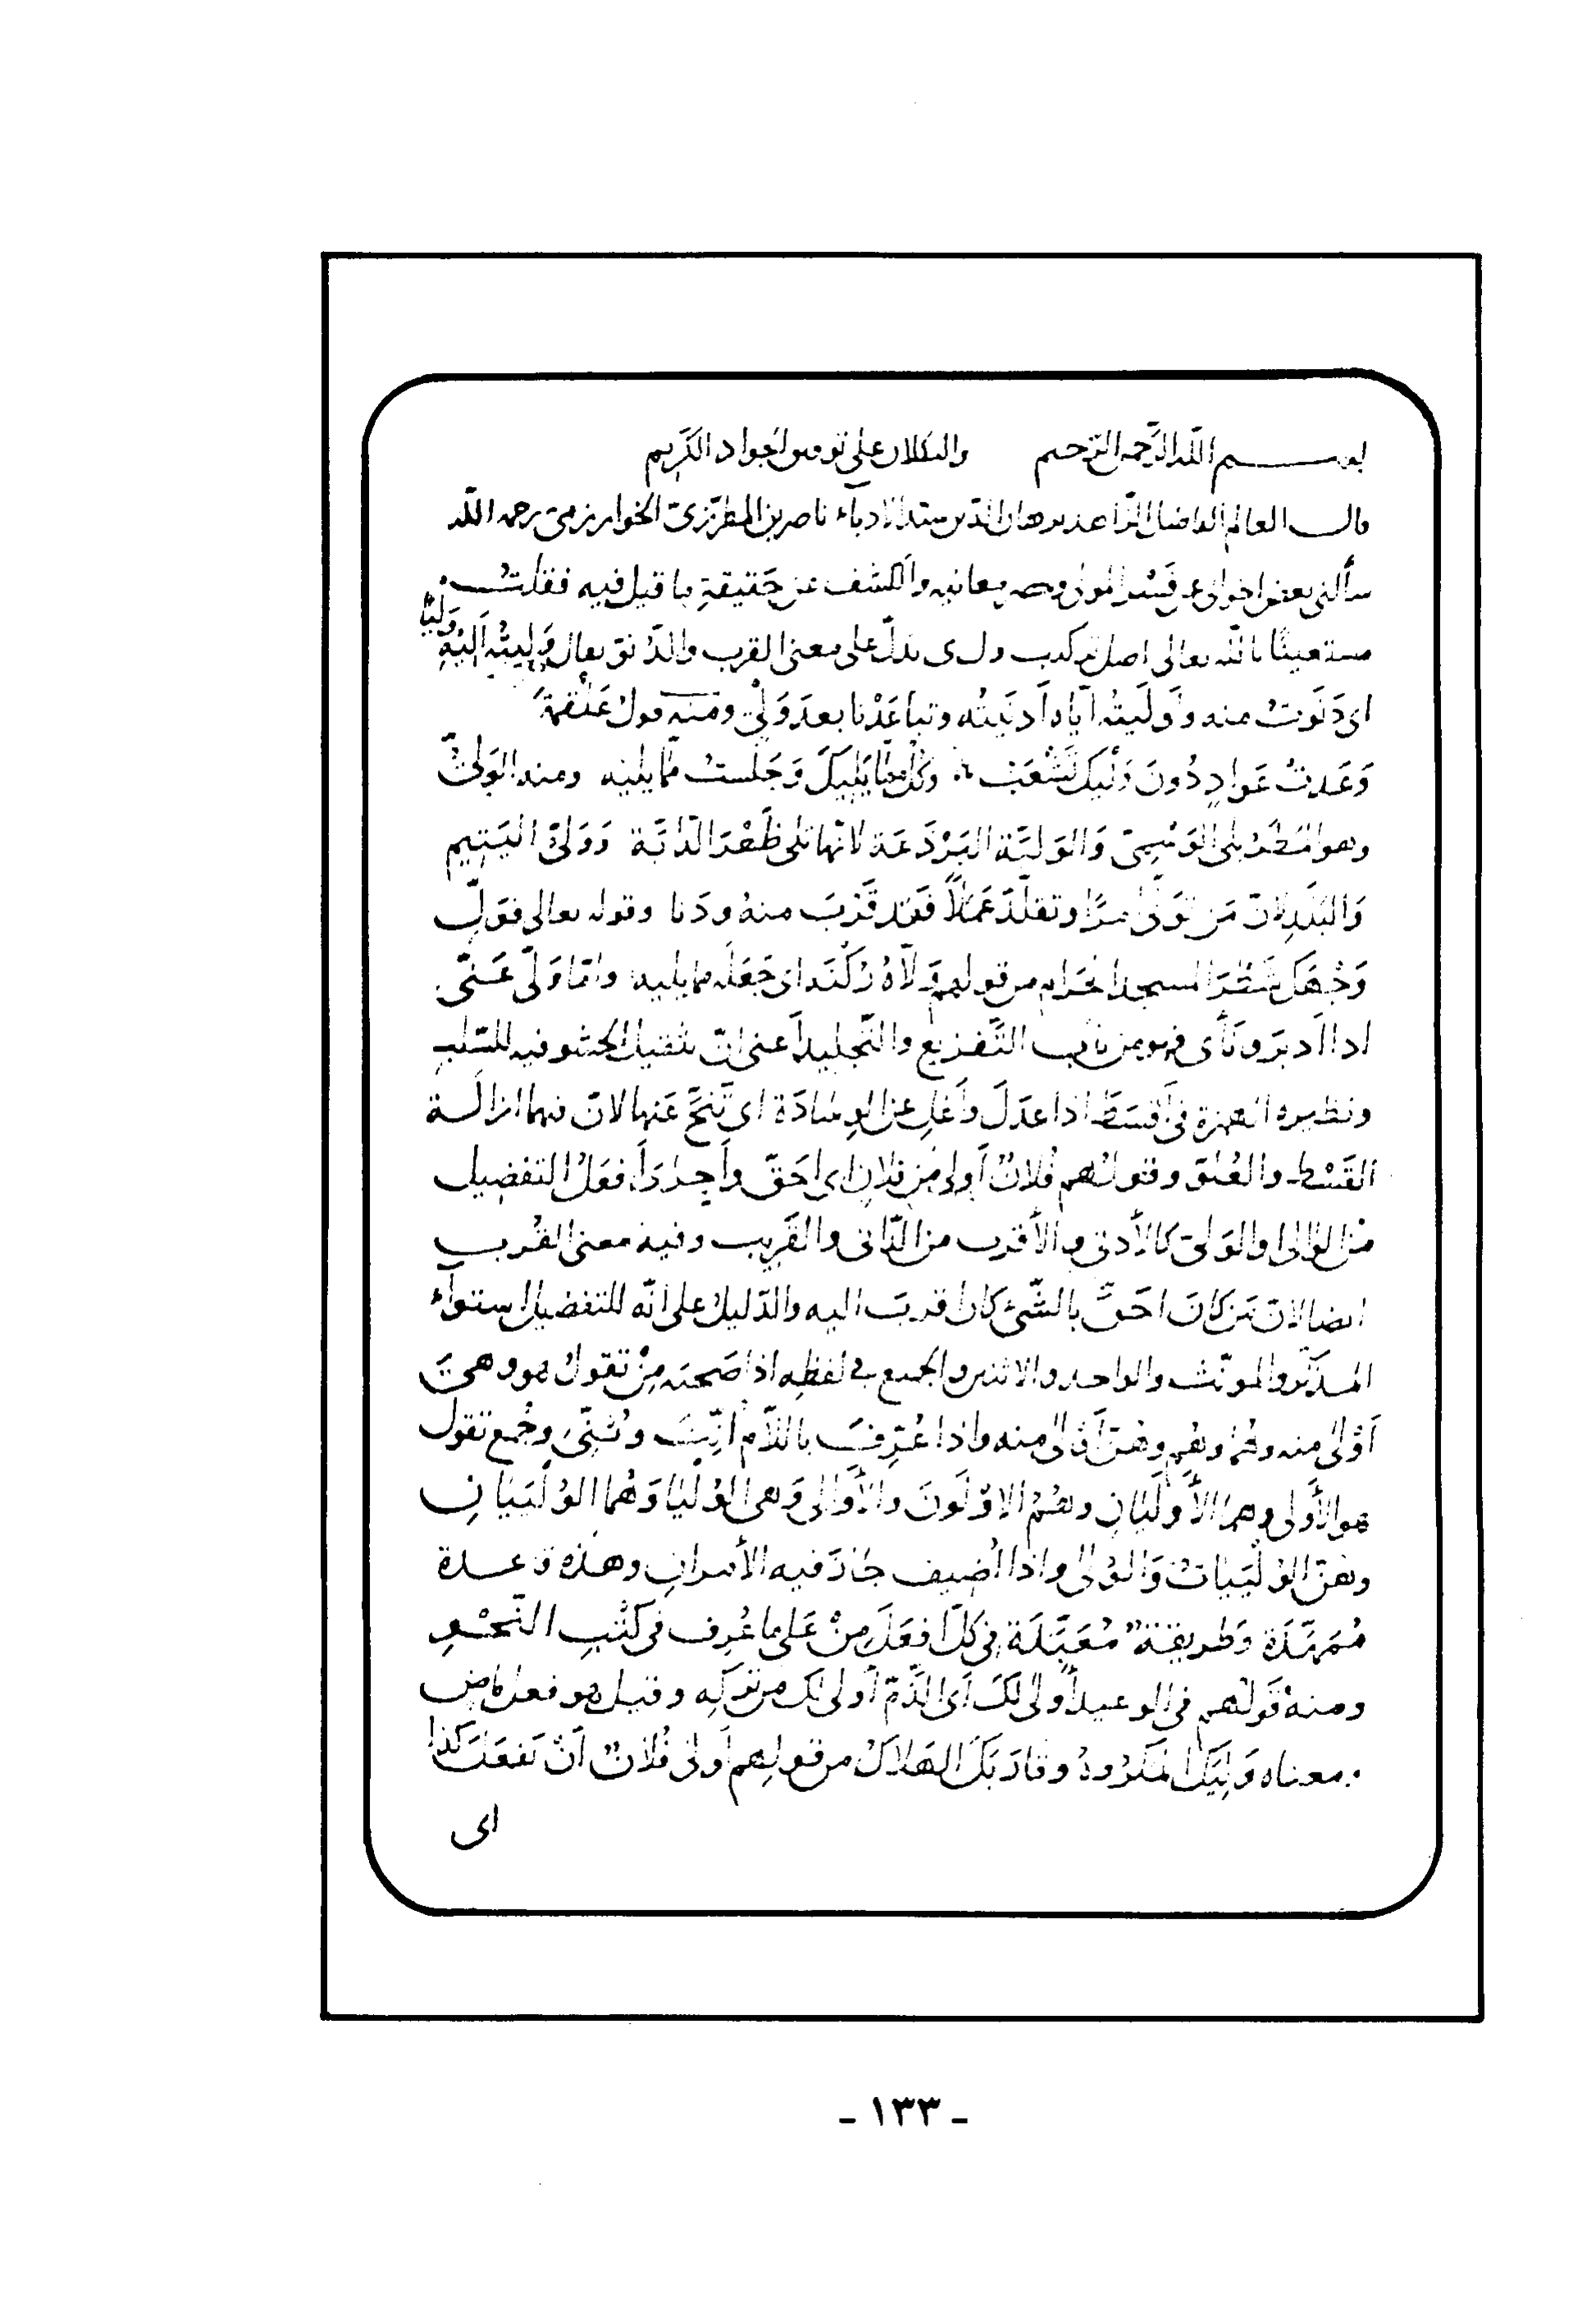 بسم الله الرحمن الرحيم والتكلان على توفيق الجواد الكريم
قال العالم الفاضل الزاهد برهان الدين سيد الادباء ناصر بن المطرّزىّ الخوارزمىّ رحمه الله
سألنى بعض اخوانى عن تفسير المولى وحصر معانيه والكشف عن حَقيقةِ ما قيل فيه فقلتُ
مستعينًا بالله تعالى اصل تركيب ول ى يدلّ على معنى القرب والدّنوّ يقال وَلِيتُه اَلِيْهِ وَلْيًا
اى دَنَوتُ منه وأَولَيتُه اياه اَدنَيتُه وتباعَدْنا بعد وَلْىٍ ومنه قولُ عَلْقَمَةَ
وَعَدتْ عَوادٍ دُونَ وَلْيِكَ تَشْعَبُ وكُلْ ممّا يَلِيكَ وَجَلستُ ممّا يليه ومنه الوَلىُّ
وهو المَطَرُ يلى الوَسْمِىَّ وَالوَليَّة البَرْذَعَة لانّها تلى ظَهْرَ الدّابّة وَوَلىّ اليَتِيم
وَالبَلَدِ لانّ مَن تَوَلّى امرًا وتقلّدَ عَمَلاً فقد قَرُبَ منهُ ودَنا وقوله تعالى فَوَلِّ
وَجْهَكَ شَطْرَ المسجد الحَرام من قولهم وَلّاهُ رُكْنَه اى جَعَلَه مما يليه وامّا وَلّى عَنّى
اذا اَدبَرَ ونَأى فهو من باب التَّفزيع والتّجليد أَعنى انّ تثقيل الحشو فيه للسّلب
ونظيره الهمزة فى أَقسَطَ اذا عدَلَ وأَغلِ عن الوِسادَة اى تَنَحَّ عَنها لانّ فيهما ازالَة
القَسْط والعُلوّ وقولُهم فُلانٌ أَولى من فلانٍ اى احَقّ وأَجدَر اَفعَلُ التفضيل
من الوَالى او الوَلىّ كالأدنى والأقرب من الدّانى والقَريب وفيه معنى القُرب
ايضا لانّ مَن كانَ احَقَّ بالشّىء كان اقربَ اليه والدّليل على انّه للتفضيل استواء
المذكّر والمؤنّث والواحد والاثنين والجمع فى لفظِه اذا صَحبَه مِنْ تقول هو وهىَ
أَوْلىٰ منه وهُما وهُم وهُنّ أَولىٰ منه واذا عُرِّفَ باللاّم اُنِّثَ وثُنِّىَ وجُمع تقول
هو الأَولى وهما الأَولَيَانِ وهُمُ الاَوْلَونَ والأَوَالى وَهى الوُلْيَا وَهُما الوُلْيَيَانِ
وهُنّ الوُلْيَيَاتُ وَالوُلىٰ واذا اُضيف جازَ فيه الأمرانِ وهذه قاعدة
مُمَهَّدَة وَطريقةٌ مُعَبَّدَة فى كلّ اَفعَلَ مِنْ عَلى ما عُرِف فى كتُبِ النّحْوِ
ومنهُ قَولهم فى الوعيد أَولىٰ لكَ اى الذّمّ أَولى لك من تركِه وقيل هو فعل ماض
معناه وَلِيَكَ المَكرُوهُ وقارَبَكَ الهَلاكُ من قولِهم أَولى فُلانٌ اَنْ يَفعَلَ كَذا
اى
- ١٣٣ -